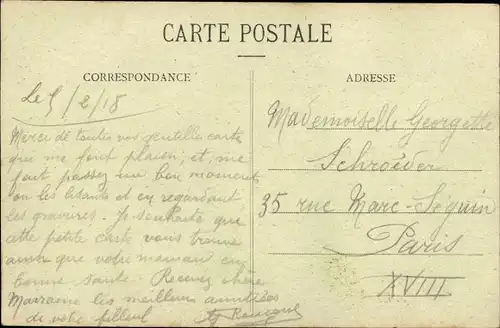 CARTE POSTALE
CORRESPONDANCE
ADRESSE
Le 5/2/18
Merci de toutes vos gentille carte
que me font plaisir, et, me
font passez un bon moment
en les lisants et en regardant
les gravures. Je souhaite que
cette petite carte vous trouve
ainsi que votre maman en
bonne santé. Recevez chère
Marraine les meilleurs amitiées
de votre filleul
Mademoiselle Georgette
Schroëder
35 rue Marc-Séguin
Paris
XVIII